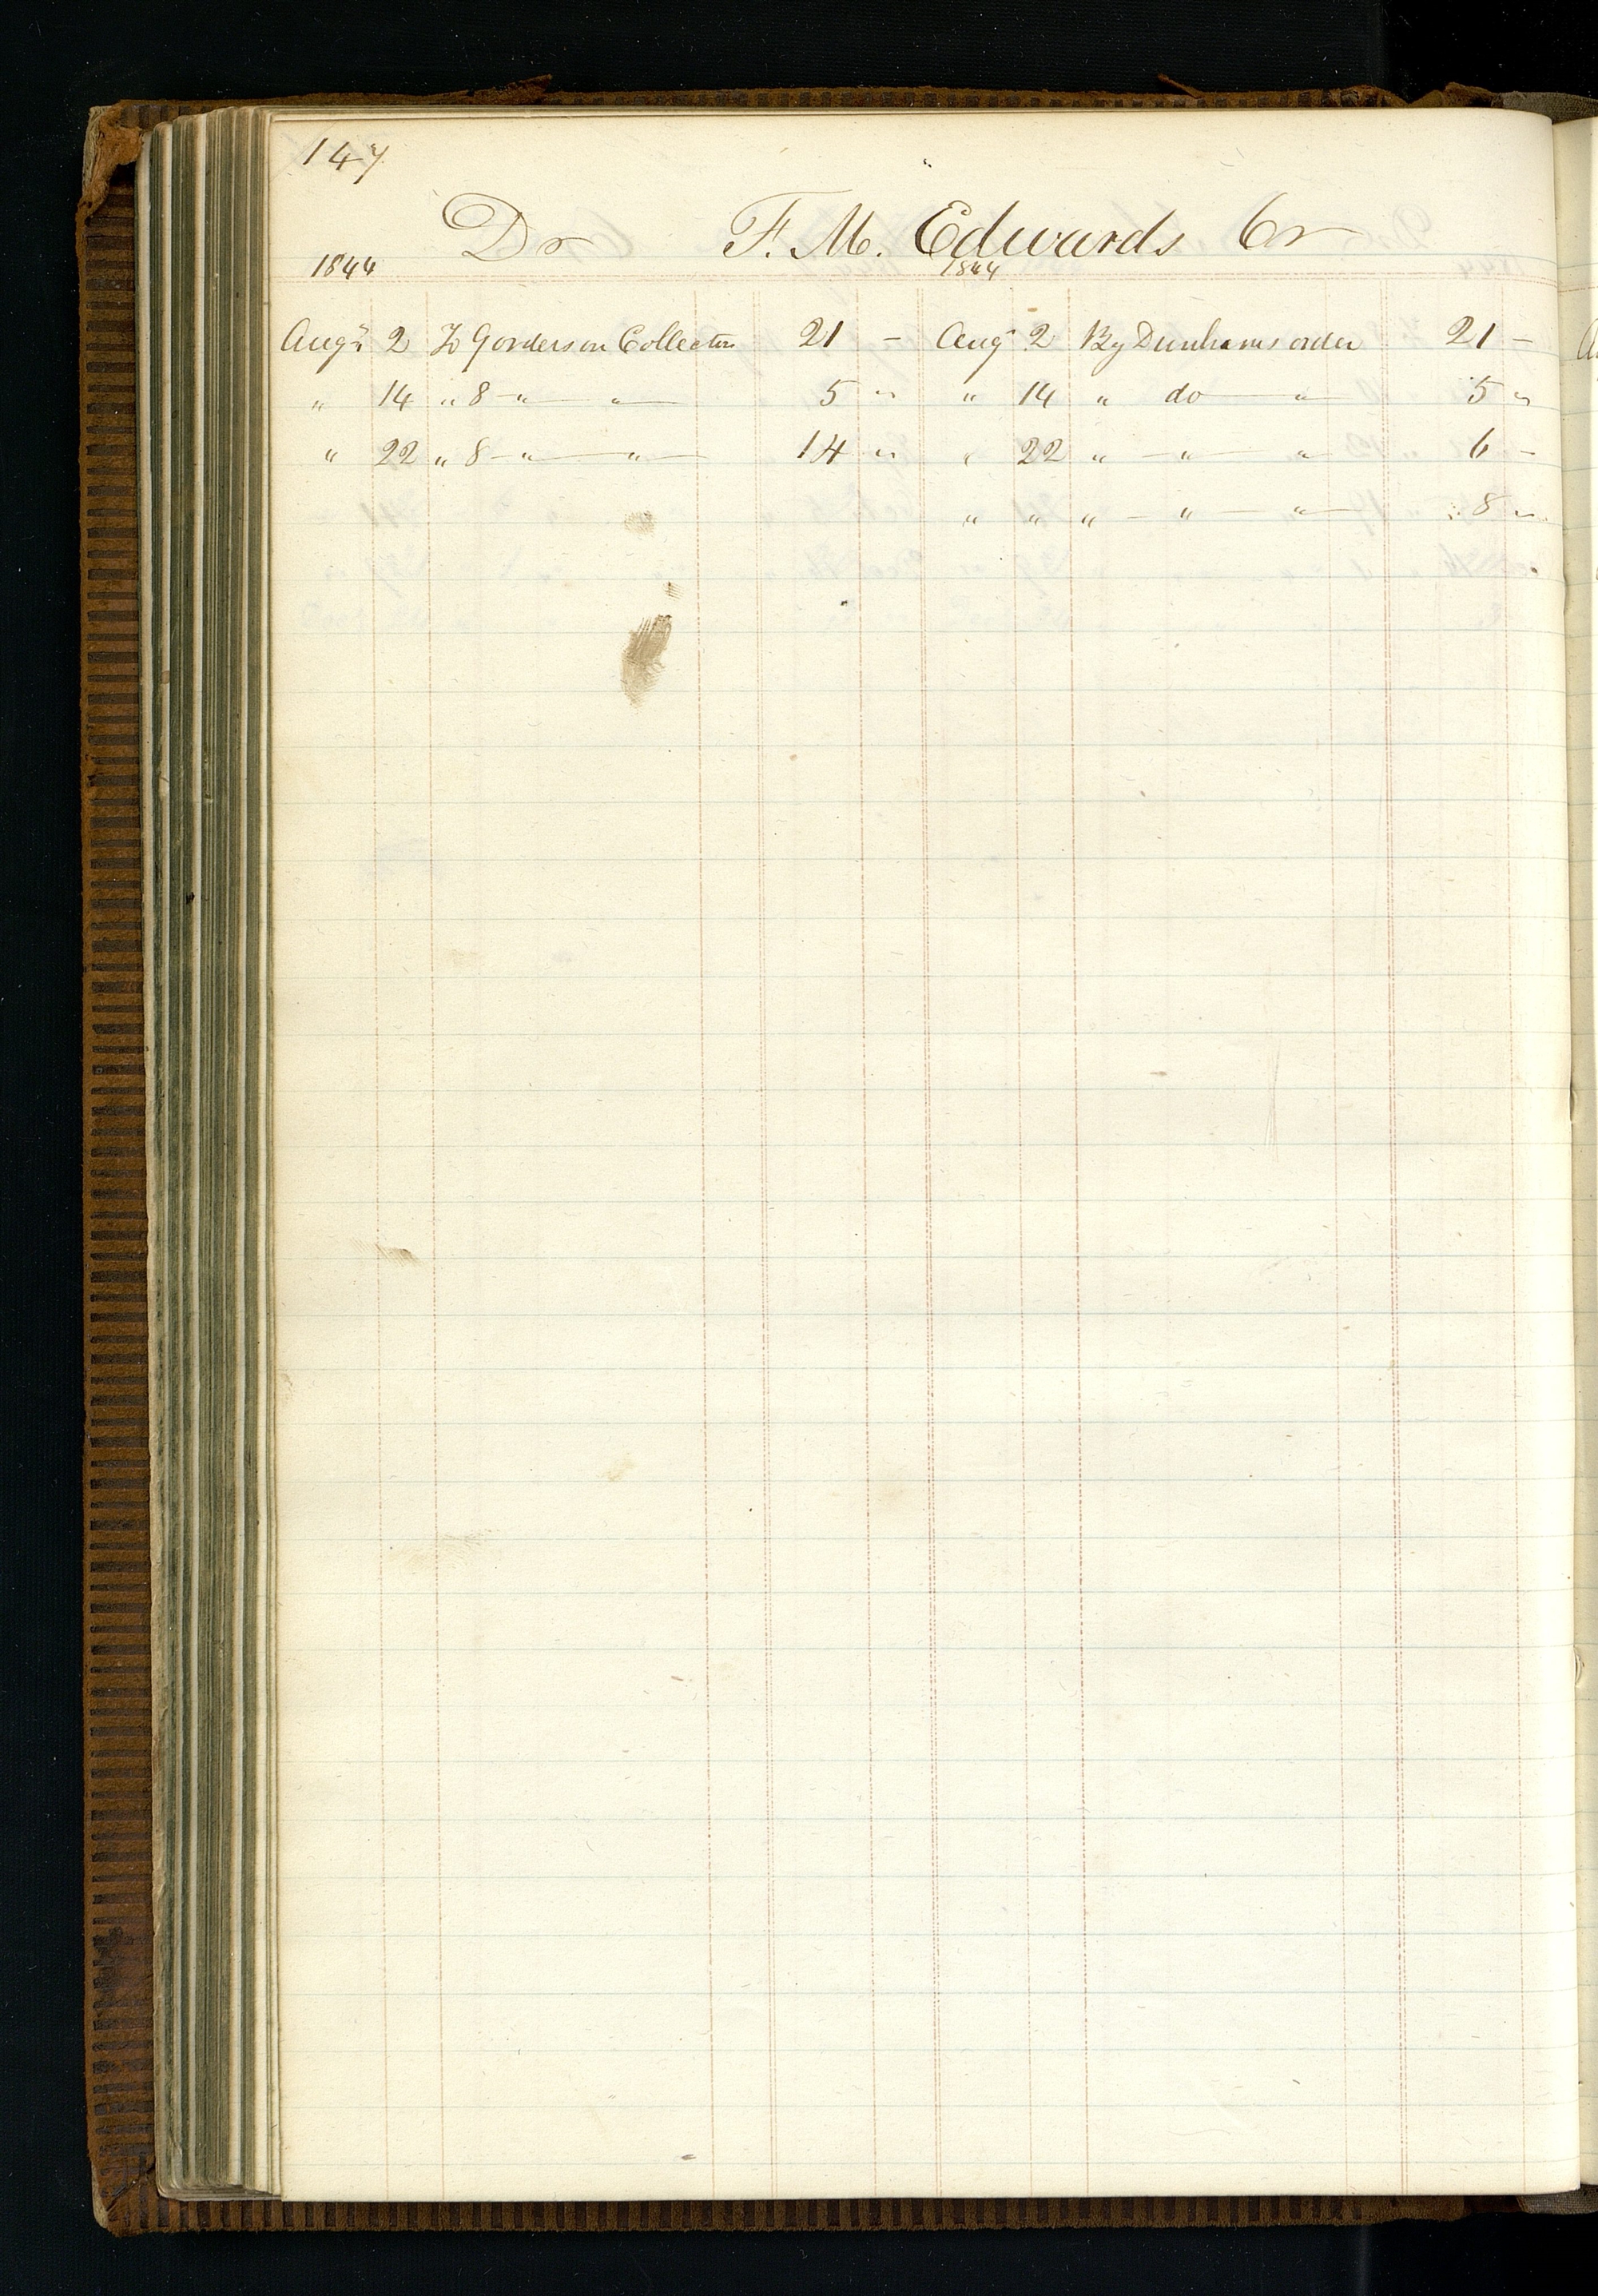 147
Dr F. M. Edwards Cr
1844 1844
Augt 2 To 9 orders on Collector 21 - Augt 2 By Dunhams order 21 -
" 14 " 8 - " - " - 5 " " 14 " do - " - 5 "
" 22 " 8 - " - " - 14 " " 22 " - " - " - 6 -
" " " - " - " - 8 "